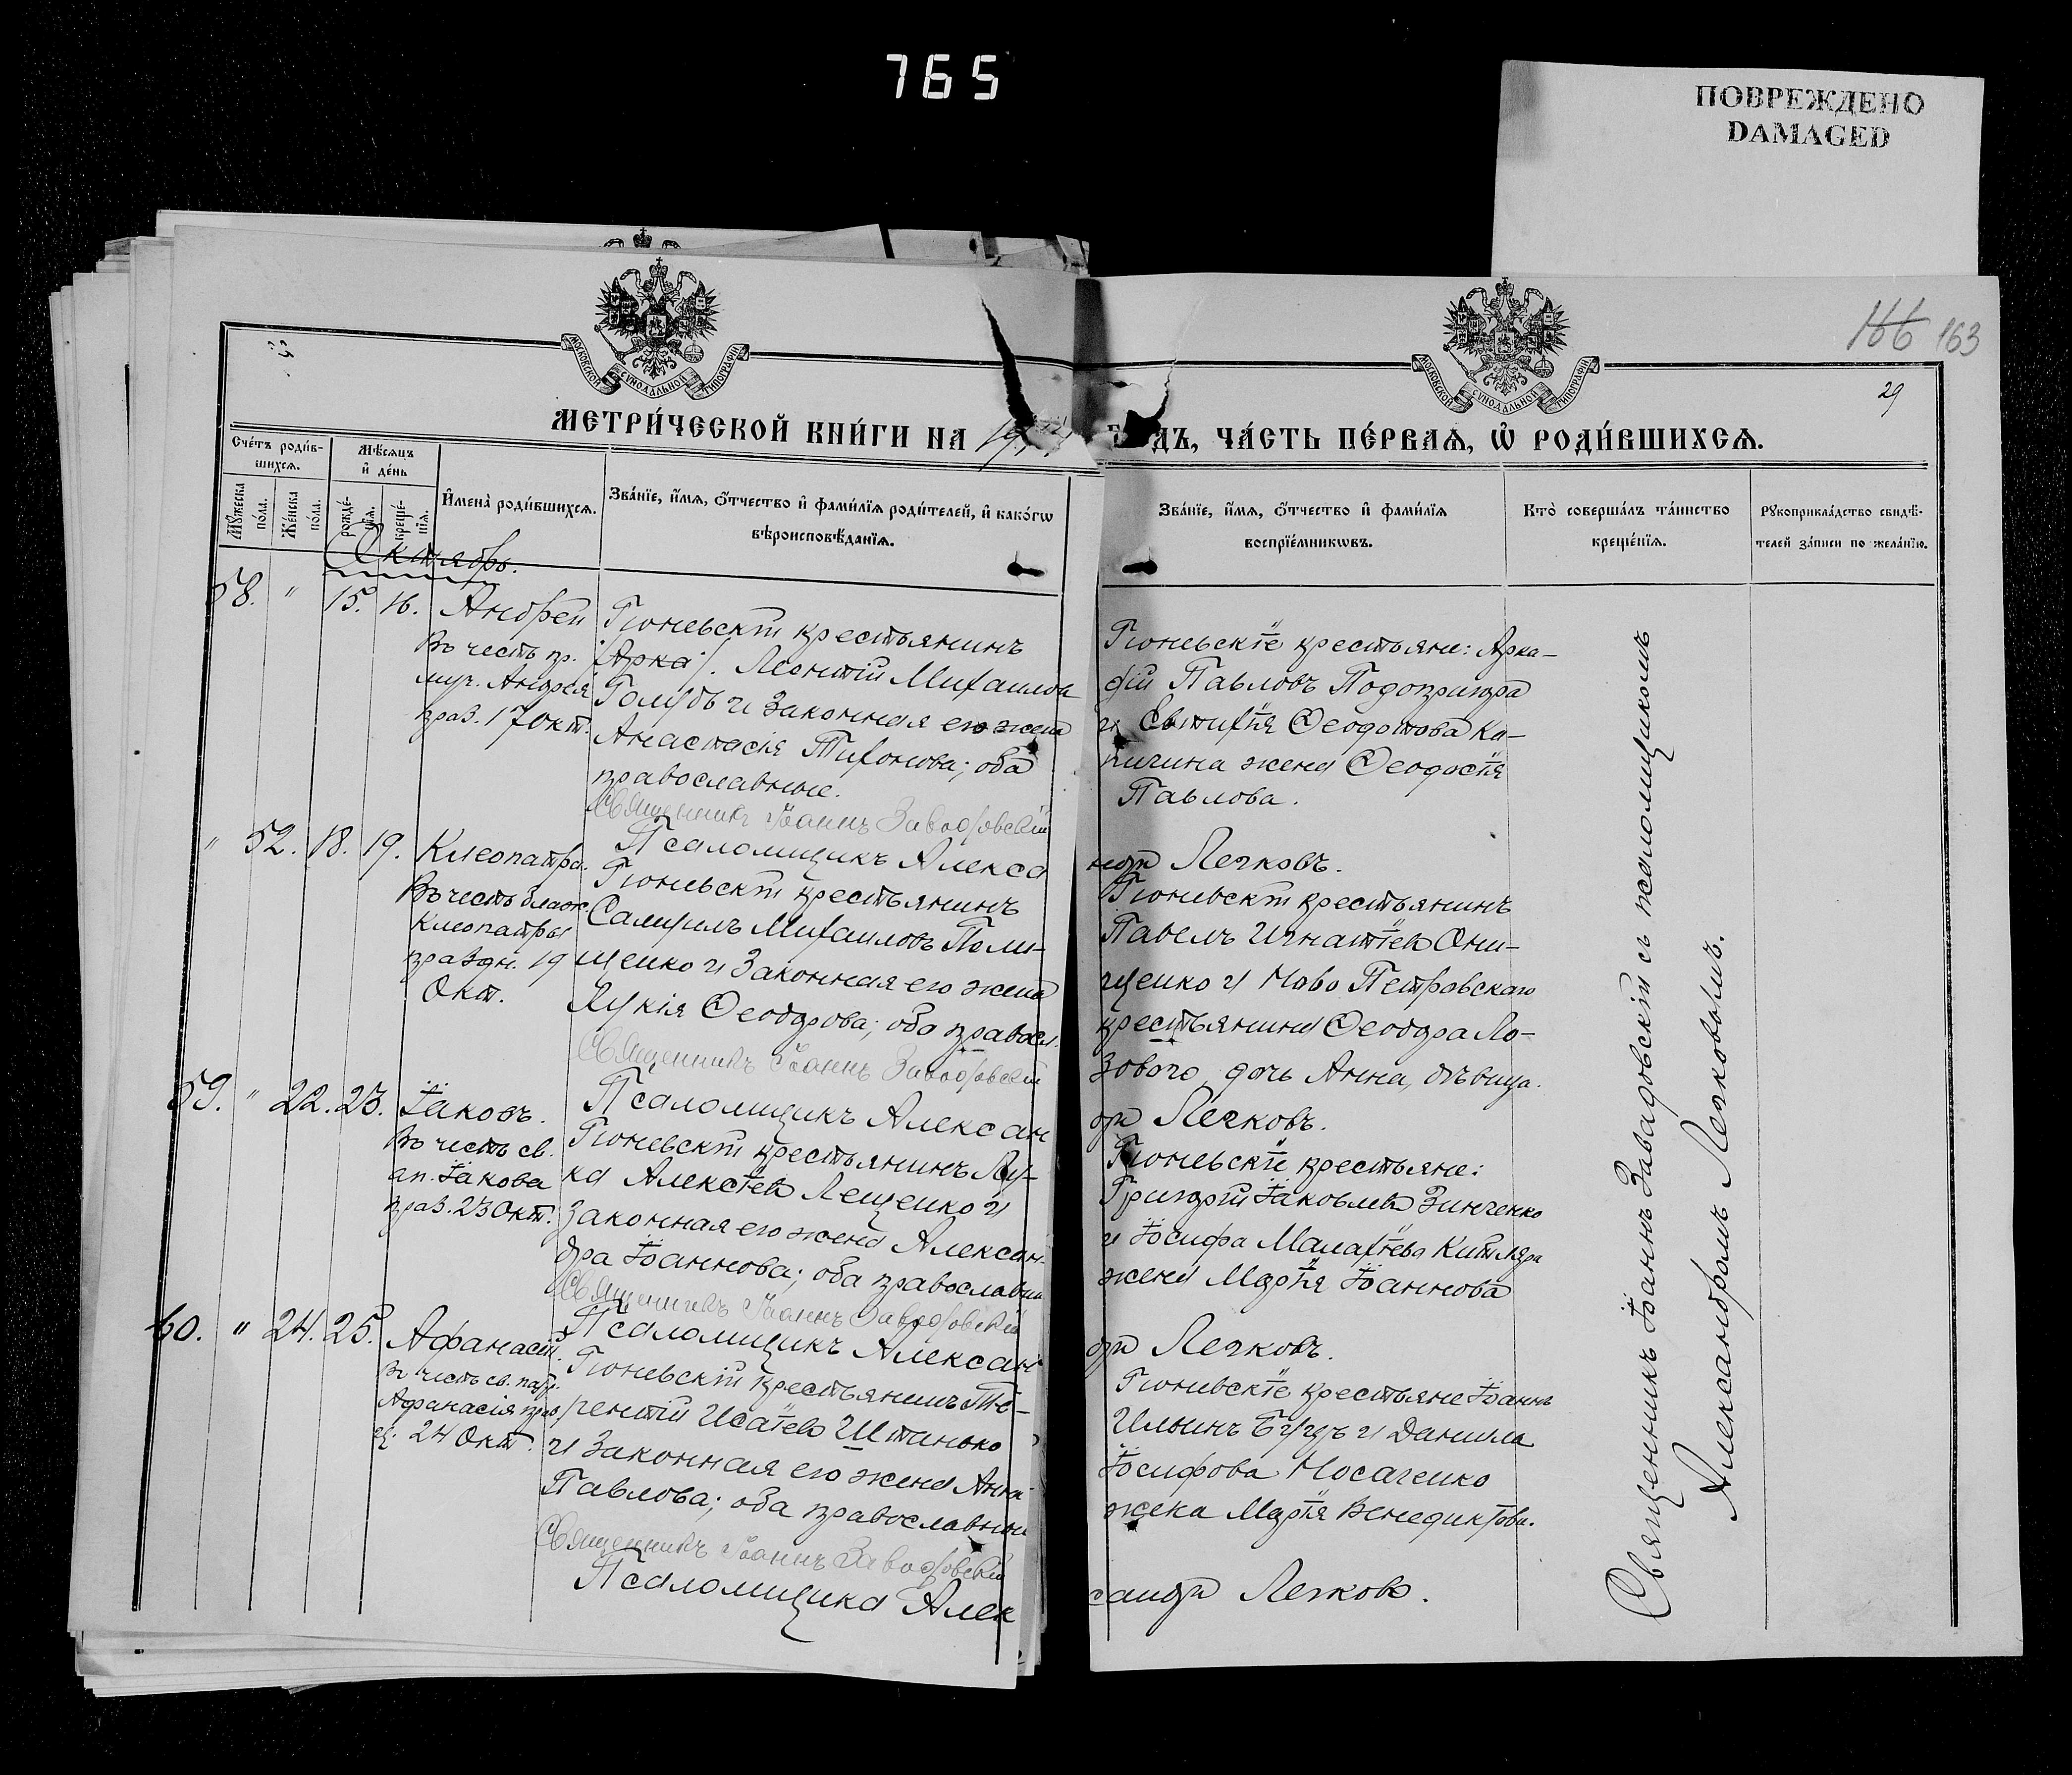 765
ПОВРЕЖДЕНО
DAMAGED
МОСКОВСКОЙ СѴНОДАЛЬНОЙ ТИПОГРАФІИ
МОСКОВСКОЙ СѴНОДАЛЬНОЙ ТИПОГРАФІИ
166 163
29
МЕТРИ́ЧЕСКОЙ КНИ́ГИ НА
ДЪ, ЧА́СТЬ ПЕ́РВАѦ, Ѡ҆ РОДИ́ВШИХСѦ.
Сче́тъ роди́в-
шихсѧ.
Мꙋ́жеска по́ла.
Же́нска по́ла.
Мѣ́сѧцъ
и҆ де́нь
рожде́-
нїѧ.
креще́-
нїѧ.
И҆мена̀ роди́вшихсѧ.
Зва́нїе, и҆́мѧ, ѻ҆́тчество и҆ фами́лїѧ роди́телей, и҆ како́гѡ
вѣроисповѣ́данїѧ.
Зва́нїе, и҆́мѧ, ѻ҆́тчество и҆ фами́лїѧ
воспрїе́мникѡвъ.
Кто̀ соверша́лъ та́инство
креще́нїѧ.
Рꙋкоприкла́дство свидѣ́-
телей за́писи по жела́нїю.
Октябрь.
58. " 15. 16.
Андрей
Въ честь пр.
муч. Андрея
праз. 17 Окт.
Гюневскій крестьянинъ
/Арка/. Леонтій Михаиловъ
Голубъ и законная его жена
Анастасія Тихонова; оба
православные.
Священникъ Іоаннъ Завадовскій
Псаломщикъ Алекса
Гюневскіе крестьяне: Арка-
дій Павловъ Подопригора
и Евтихія Ѳеодотова Ка-
пичина жена Ѳеодосія
Павлова.
ндръ Легковъ.
" 52. 18. 19.
Клеопатра.
Въ честь блаж.
Клеопатры
праздн. 19
Окт.
Гюневскій крестьянинъ
Самуилъ Михаиловъ Поли-
щенко и законная его жена
Лукія Ѳеодорова; оба правосл.
Священникъ Іоаннъ Завадовскій
Псаломщикъ Алексан
Гюневскій крестьянинъ
Павелъ Игнатіевъ Они-
щенко и Ново Петровскаго
крестьянина Ѳеодора Ло-
зового дочь Анна, дѣвица.
дръ Легковъ.
59. " 22. 23.
Іаковъ.
Въ честь св.
ап. Іакова
праз. 23 Окт.
Гюневскій крестьянинъ Лу-
ка Алексіевъ Лещенко и
законная его жена Алексан-
дра Іоаннова; оба православны
Священникъ Іоаннъ Завадовскій
Псаломщикъ Алексан
Гюневскіе крестьяне:
Григорій Іаковлевъ Зинченко
и Іосифа Малахіева Китляра
жена Марія Іоаннова
дръ Легковъ.
60. " 24. 25.
Афанасій.
Въ честь св. патр.
Афанасія праз
24 Окт.
Гюневскій крестьянинъ Те-
рентій Исаіевъ Штанько
и законная его жена Анна
Павлова; оба православные
Священникъ Іоаннъ Завадовскій
Псаломщикъ Алек
Гюневскіе крестьяне Іоаннъ
Ильинъ и Даніила
Іосифова Носаченко
жена Марія Венедиктова.
сандръ Легковъ.
Священникъ Іоаннъ Завадовскій съ псаломщикомъ
Александромъ Легковымъ.